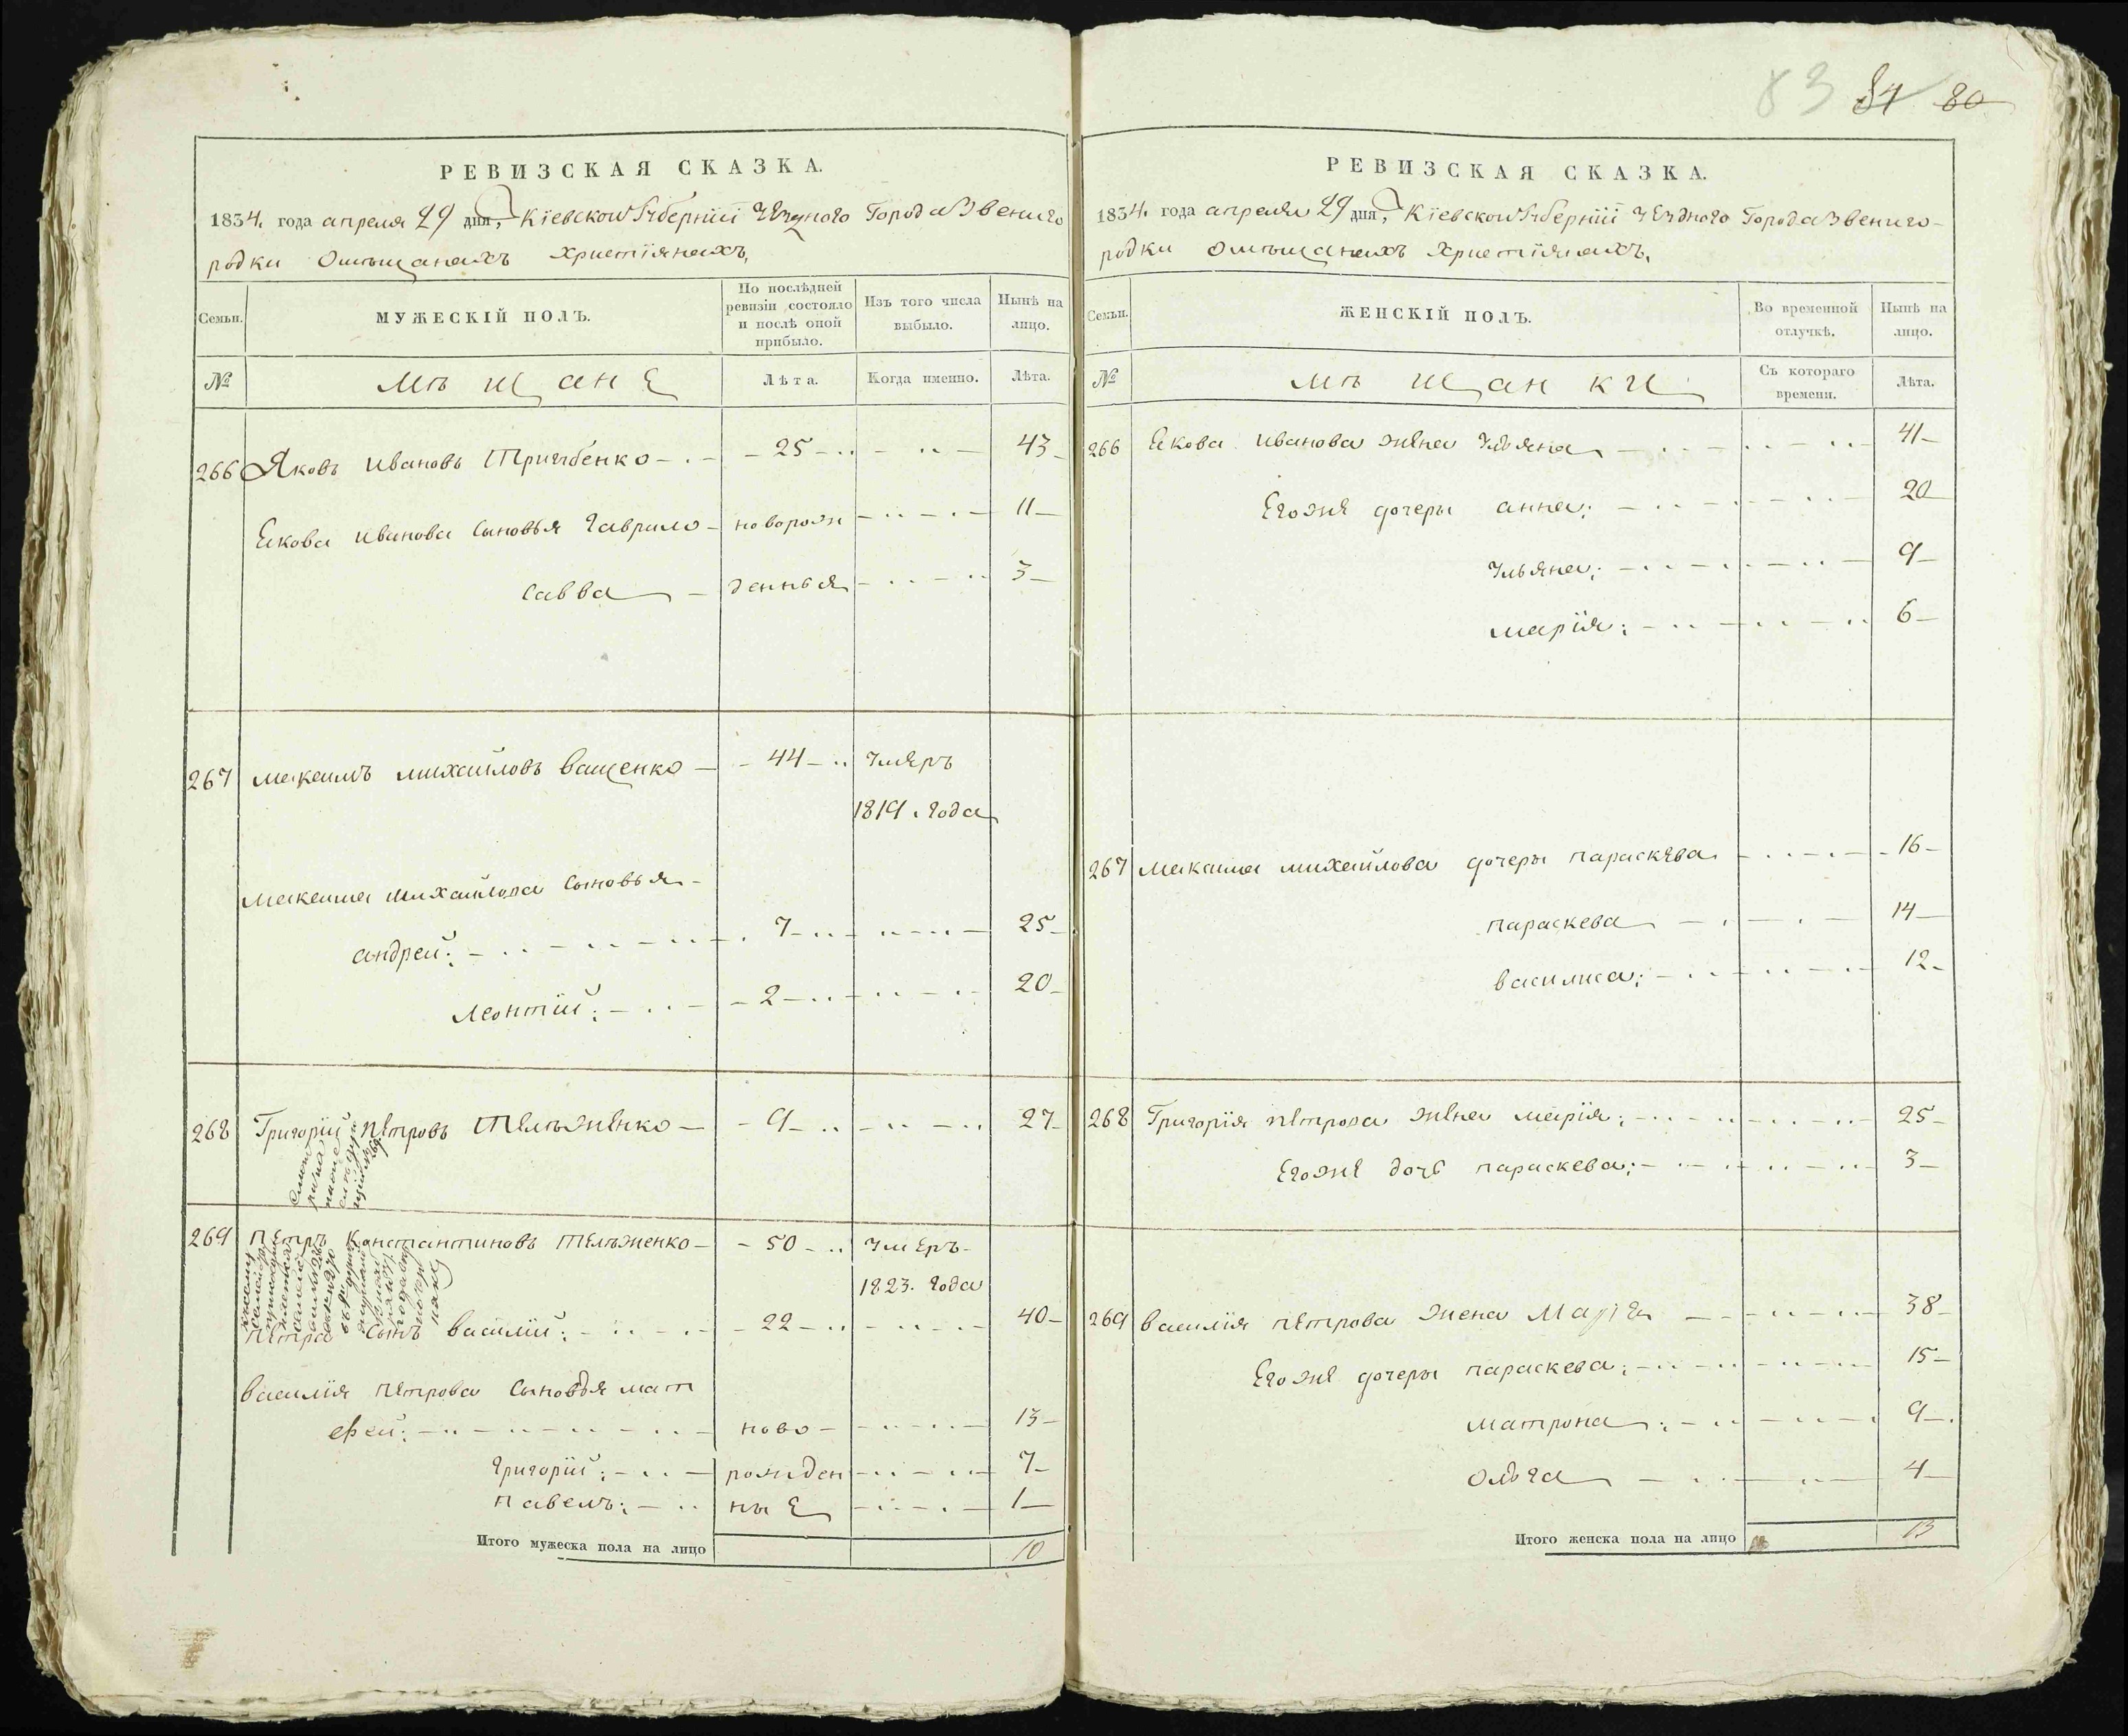 83 84 80
РЕВИЗСКАЯ СКАЗКА.
1834. года апреля 29 дня, Кїевской Губернїи Уезного Города Звениго
родки Омѣщанахъ Християнахъ,
Семьи.
МУЖЕСКІЙ ПОЛЪ.
По послѣдней ревизіи состояло и послѣ оной прибыло.
Изъ того числа выбыло.
Нынѣ на лицо.
№
мѣщане
Лѣта.
Когда именно.
Лѣта.
266 Яковъ Ивановъ Тригубенко - 25 - 43
Якова Иванова Сыновья Гаврило - новорож 11
Савва - денныя 3
267 Максимъ Михайловъ Ващенко - 44 - Умеръ
1819. Года
Максима Михайлова Сыновья
андрей: - 7 - 25
Леонтїй: - 2 - 20
268 Григорїй Петровъ Тележенко - 9 - 27
269 Петръ Константиновъ Тележенко - 50 - Умеръ
1823. Года
Петра Сынъ Василїй: - 22 - 40
Василїя Петрова Сыновья мат
фей: - ново - 13
Григорїй: - рожден 7
Павелъ: - ныЕ 1
Итого мужеска пола на лицо 10
РЕВИЗСКАЯ СКАЗКА.
1834. года апреля 29 дня, Кїевской Губернїи Уездного Города Звениго-
родки Омѣщанахъ Християнахъ.
Семьи.
ЖЕНСКІЙ ПОЛЪ.
Во временной отлучкѣ.
Нынѣ на лицо.
№
мѣщанки
Съ котораго времени.
Лѣта.
266 Якова Иванова жена Ульяна 41
Егоже дочеры анна: 20
Ульяна: 9
марїя: 6
267 Максима Михайлова дочеры параскева 16
параскева 14
василиса: 12
268 Григорїя петрова жена марїя: 25
Егоже дочь параскева: 3
269 Василїя петрова жена Марїя 38
Егоже дочеры параскева: 15
матрона: 9
Ольга 4
Итого женска пола на лицо 13